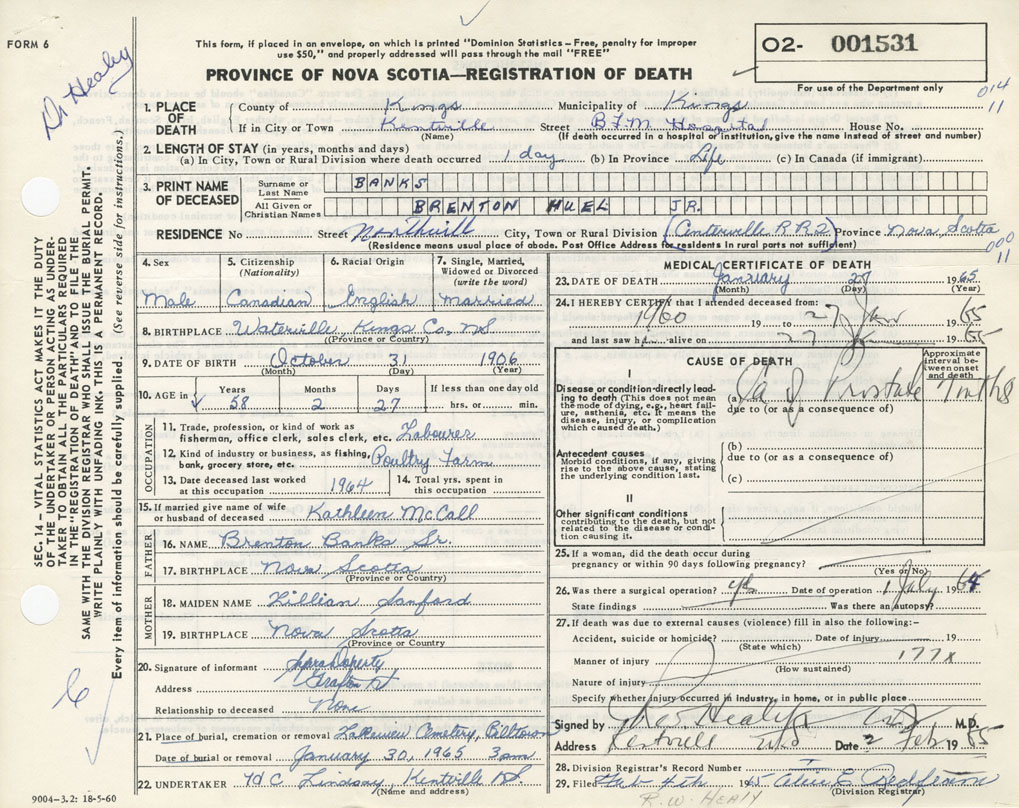 FORM 6
Dr Healy
This form, if placed in an envelope, on which is printed "Dominion Statistics—Free, penalty for improper
use $50," and properly addressed will pass through the mail "FREE"
PROVINCE OF NOVA SCOTIA—REGISTRATION OF DEATH
02- 001531
For use of the Department only
014
11
1. PLACE OF DEATH { County of Kings Municipality of Kings
If in City or Town Kentville Street B.F.M. Hospital House No.
(Name) (If death occurred in a hospital or institution, give the name instead of street and number)
2. LENGTH OF STAY (in years, months and days)
(a) In City, Town or Rural Division where death occurred 1 day (b) In Province Life (c) In Canada (if immigrant)
3. PRINT NAME OF DECEASED { Surname or Last Name BANKS
All Given or Christian Names BRENTON HUEL JR.
RESIDENCE No Street Northville City, Town or Rural Division (Centerville R.R.2) Province Nova Scotia
(Residence means usual place of abode. Post Office Address for residents in rural parts not sufficient)
000
11
4. Sex 5. Citizenship (Nationality) 6. Racial Origin 7. Single, Married, Widowed or Divorced (write the word)
Male Canadian English Married
8. BIRTHPLACE Waterville, Kings Co. N.S.
(Province or Country)
9. DATE OF BIRTH October 31 1906
(Month) (Day) (Year)
10. AGE in Years Months Days If less than one day old
58 2 27 hrs. or min.
OCCUPATION
11. Trade, profession, or kind of work as fisherman, office clerk, sales clerk, etc. Labourer
12. Kind of industry or business, as fishing, bank, grocery store, etc. Poultry Farm
13. Date deceased last worked at this occupation 1964 14. Total yrs. spent in this occupation
15. If married give name of wife or husband of deceased Kathleen McCall
FATHER
16. NAME Brenton Banks Sr.
17. BIRTHPLACE Nova Scotia
(Province or Country)
MOTHER
18. MAIDEN NAME Lillian Sanford
19. BIRTHPLACE Nova Scotia
(Province or Country
20. Signature of informant
Address Grafton
Relationship to deceased None
21. Place of burial, cremation or removal Cemetery,
Date of burial or removal January 30, 1965 3 pm
22. UNDERTAKER Lindsay, Kentville N.S.
(Name and address)
9004—3.2: 18-5-60
MEDICAL CERTIFICATE OF DEATH
23. DATE OF DEATH January 27 1965
(Month) (Day) (Year)
24. I HEREBY CERTIFY that I attended deceased from:
1960 19 to 27 Jan 1965
and last saw h alive on 27 1965
CAUSE OF DEATH
Approximate interval between onset and death
I
Disease or condition directly leading to death (This does not mean the mode of dying, e.g., heart failure, asthenia, etc. It means the disease, injury, or complication which caused death.)
(a) Ca of Prostate
due to (or as a consequence of)
Antecedent causes
Morbid conditions, if any, giving rise to the above cause, stating the underlying condition last.
(b)
due to (or as a consequence of)
(c)
II
Other significant conditions
contributing to the death, but not related to the disease or condition causing it.
25. If a woman, did the death occur during
pregnancy or within 90 days following pregnancy?
(Yes or No)
26. Was there a surgical operation? yes Date of operation 1 July 1964
State findings Was there an autopsy?
27. If death was due to external causes (violence) fill in also the following:-
Accident, suicide or homicide? Date of injury 19
(State which)
Manner of injury 177X
(How sustained)
Nature of injury
Specify whether injury occurred in industry, in home, or in public place
Signed by Healy M.D.
Address Kentville Date 2 Feb 1965
28. Division Registrar's Record Number
29. Filed Feb 4th 1965
(Division Registrar)
R. W. HEALY
SEC. 14—VITAL STATISTICS ACT MAKES IT THE DUTY
OF THE UNDERTAKER OR PERSON ACTING AS UNDER-
TAKER TO OBTAIN ALL THE PARTICULARS REQUIRED
IN THE "REGISTRATION OF DEATH" AND TO FILE THE
SAME WITH THE DIVISION REGISTRAR WHO SHALL ISSUE THE BURIAL PERMIT.
WRITE PLAINLY WITH UNFADING INK. THIS IS A PERMANENT RECORD.
Every item of information should be carefully supplied. (See reverse side for instructions.)